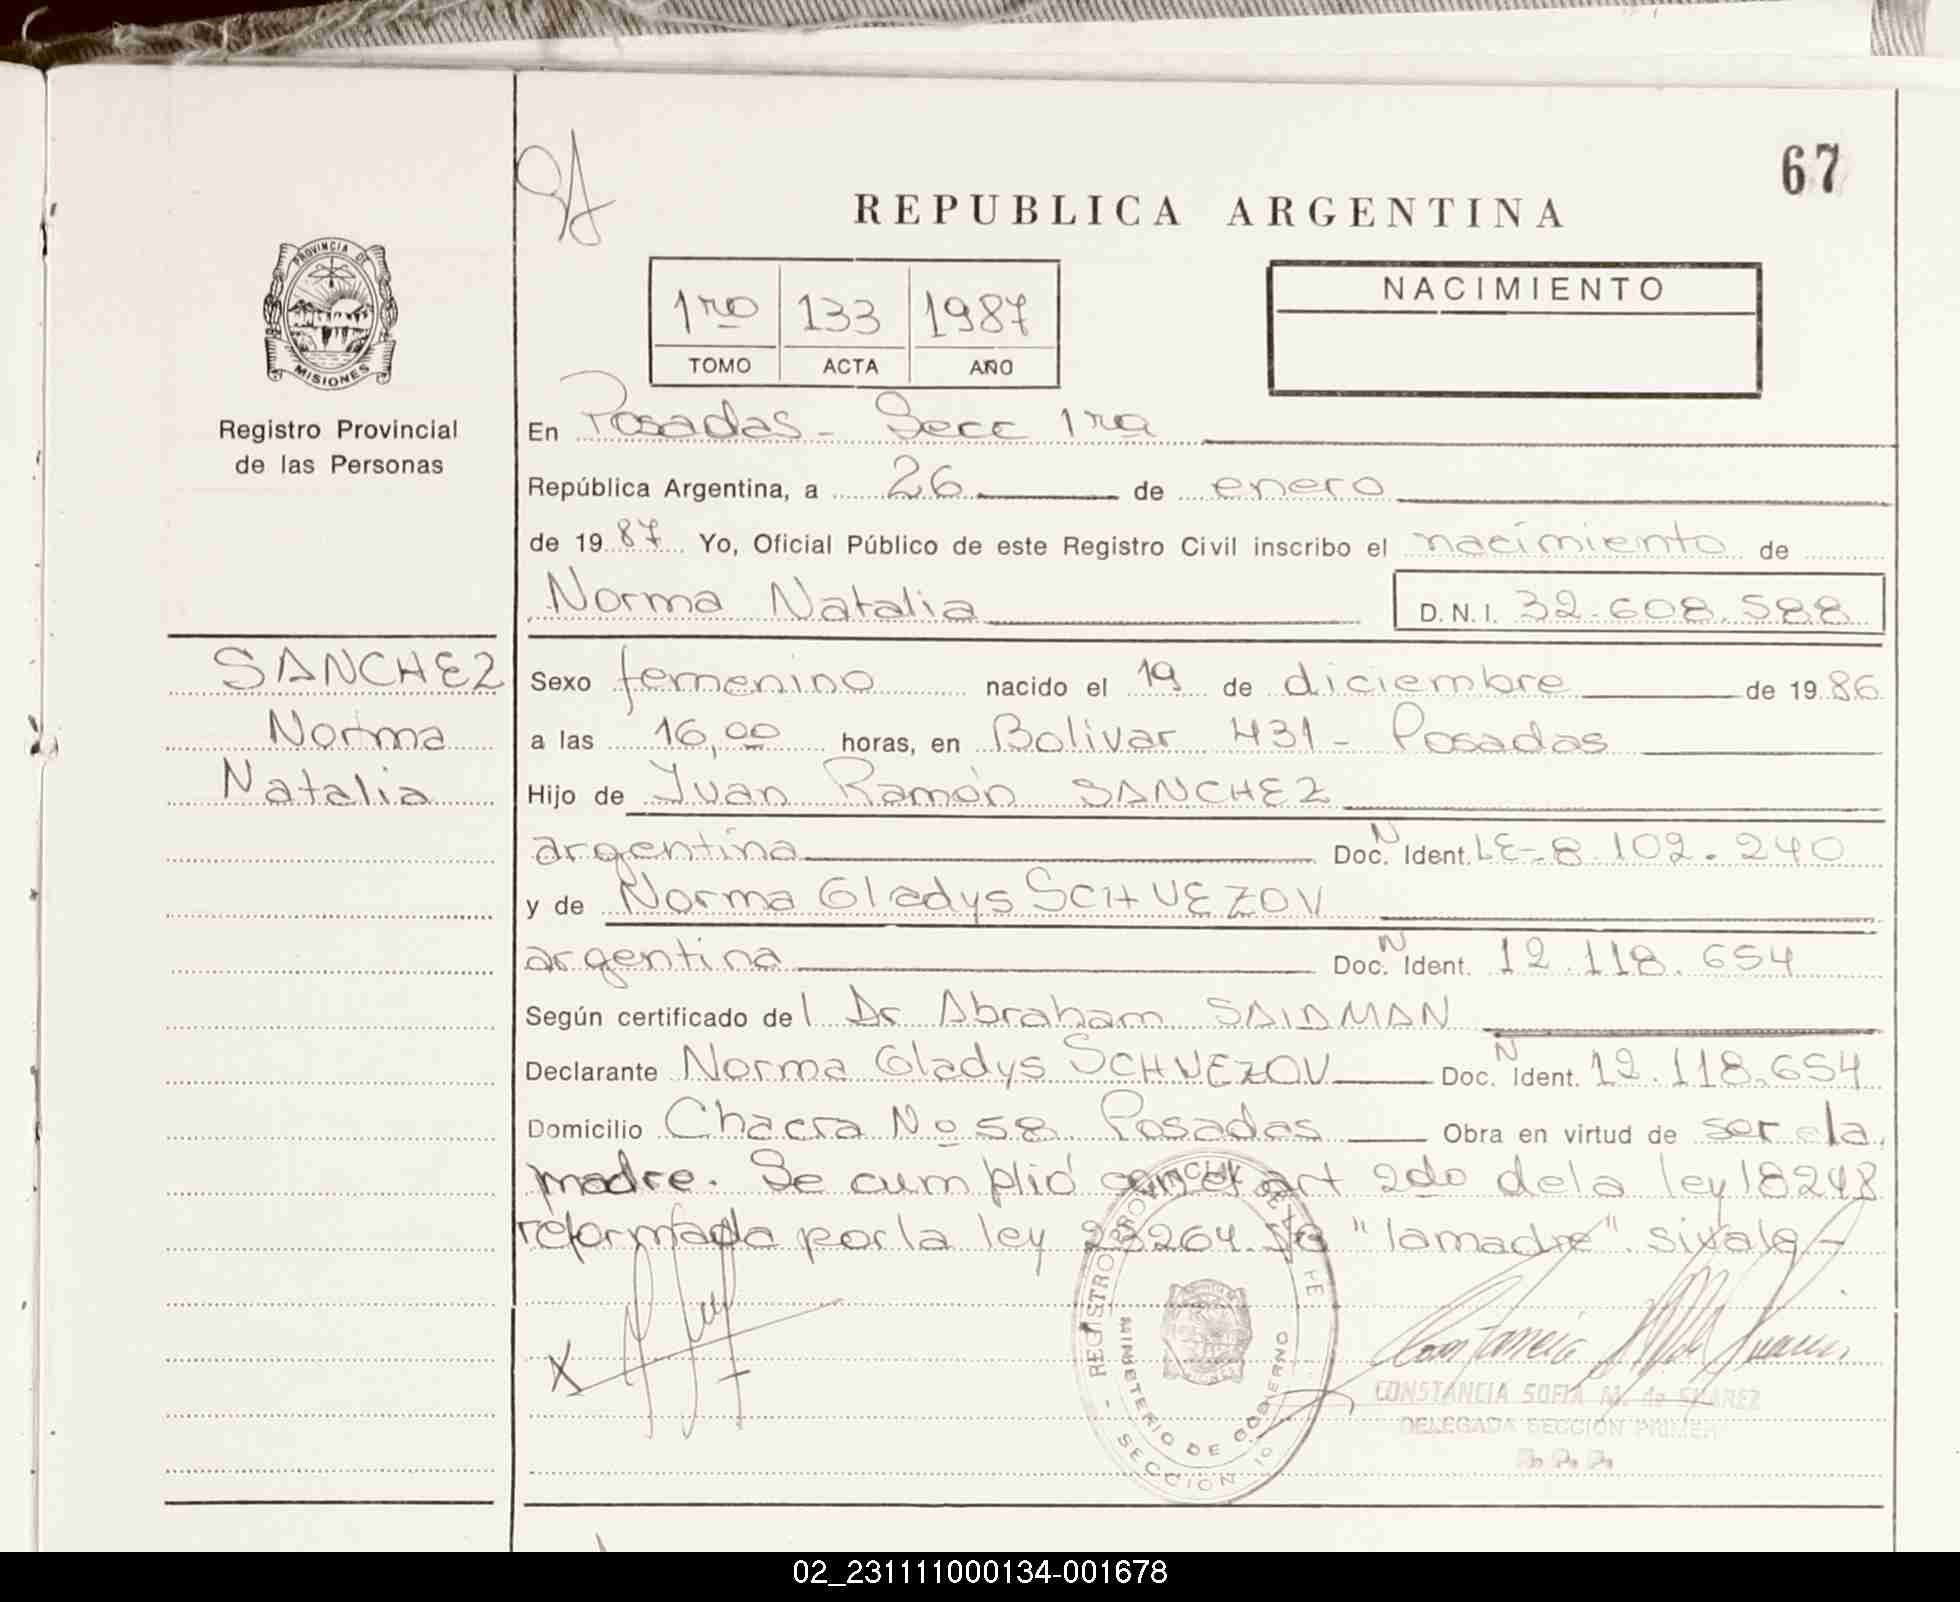 67
REPUBLICA ARGENTINA
PROVINCIA DE
MISIONES
Registro Provincial
de las Personas
1ro 133 1987
TOMO ACTA AÑO
NACIMIENTO
En Posadas - Secc 1ra
República Argentina, a 26 de enero
de 1987 Yo, Oficial Público de este Registro Civil inscribo el nacimiento de
Norma Natalia D.N.I. 32.608.588
SANCHEZ
Norma
Natalia
Sexo femenino nacido el 19 de diciembre de 1986
a las 16,00 horas, en Bolivar 431 - Posadas
Hijo de Juan Ramón SANCHEZ
argentina Doc. N Ident. LE-8.102.240
y de Norma Gladys SCHVEZOV
argentina Doc. N Ident. 12.118.654
Según certificado del Dr Abraham SAIDMAN
Declarante Norma Gladys SCHVEZOV Doc. N Ident. 12.118.654
Domicilio Chacra No 58 Posadas Obra en virtud de ser la
madre. Se cumplió con el art 2do de la ley 18248
reformada por la ley 23264. "la madre" si vale -
X
MINISTERIO DE GOBERNO
SECCION
CONSTANCIA SOFIA M. de SUAREZ
DELEGADA SECCION PRIMERA
R. P. P.
02_231111000134-001678